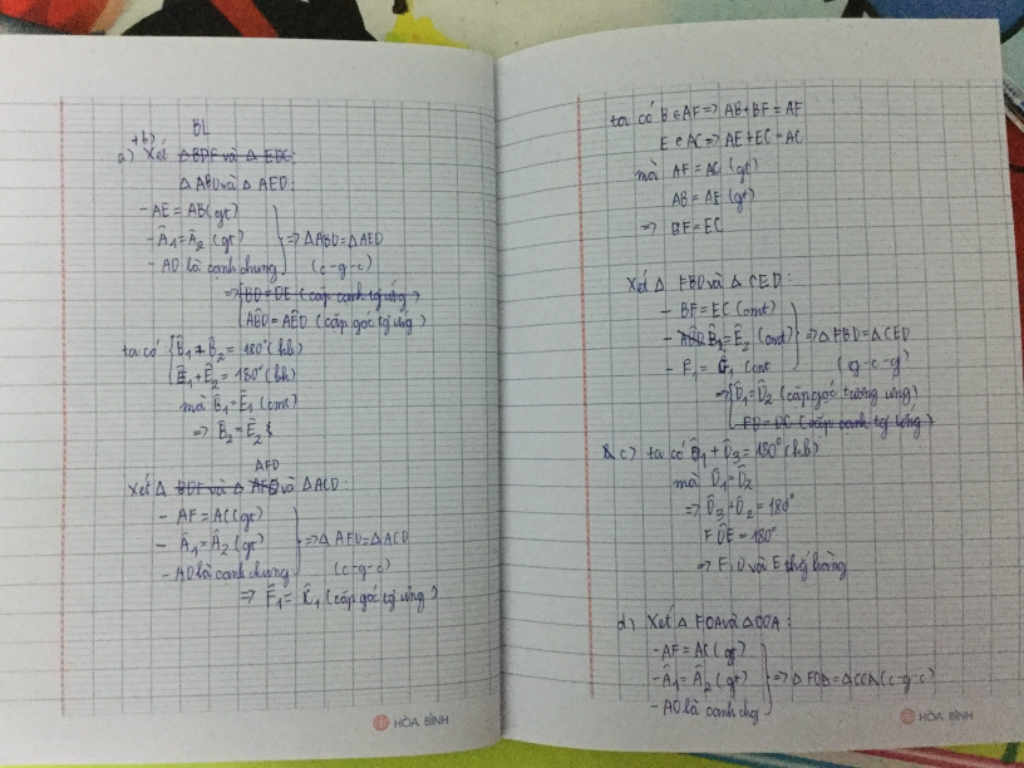 BL
a) + b) Xét △BDF và △EDC:
△ABD và △AED:
- AE = AB (gt)
- Â1 = Â2 (gt)
- AD là cạnh chung
⇒ △ABD = △AED
(c-g-c)
⇒ BD = DE (cặp cạnh tợ ứng)
AÊD = AÊD (cặp góc tợ ứng)
ta có B̂1 + B̂2 = 180° (kb)
Ê1 + Ê2 = 180° (kb)
mà B̂1 = Ê1 (cmt)
⇒ B̂2 = Ê2
AFD
Xét △ BDF và △ AFD và △ACD:
- AF = AC (gt)
- Â1 = Â2 (gt)
- AD là cạnh chung
⇒ △AFD = △ACD
(c-g-c)
⇒ F̂1 = Ĉ1 (cặp góc tợ ứng)
ta có B ∈ AF ⇒ AB + BF = AF
E ∈ AC ⇒ AE + EC = AC
mà AF = AC (gt)
AB = AE (gt)
⇒ BF = EC
Xét △ FBD và △ CED:
- BF = EC (cmt)
- ABD B̂2 = Ê2 (cmt)
- F̂1 = Ĉ1 (cmt
⇒ △FBD = △CED
(g-c-g)
⇒ D̂1 = D̂2 (cặp góc tương ứng)
FD = DC (cặp cạnh tợ ứng)
c) ta có D̂1 + D̂3 = 180° (kb)
mà D̂1 = D̂2
⇒ D̂3 + D̂2 = 180°
FD̂E = 180°
⇒ F, D và E thẳng hàng
d) Xét △ FOA và △COA:
- AF = AC (gt)
- Â1 = Â2 (gt)
- AO là cạnh chg
⇒ △FOA = △COA (c-g-c)
HÒA BÌNH
HÒA BÌNH